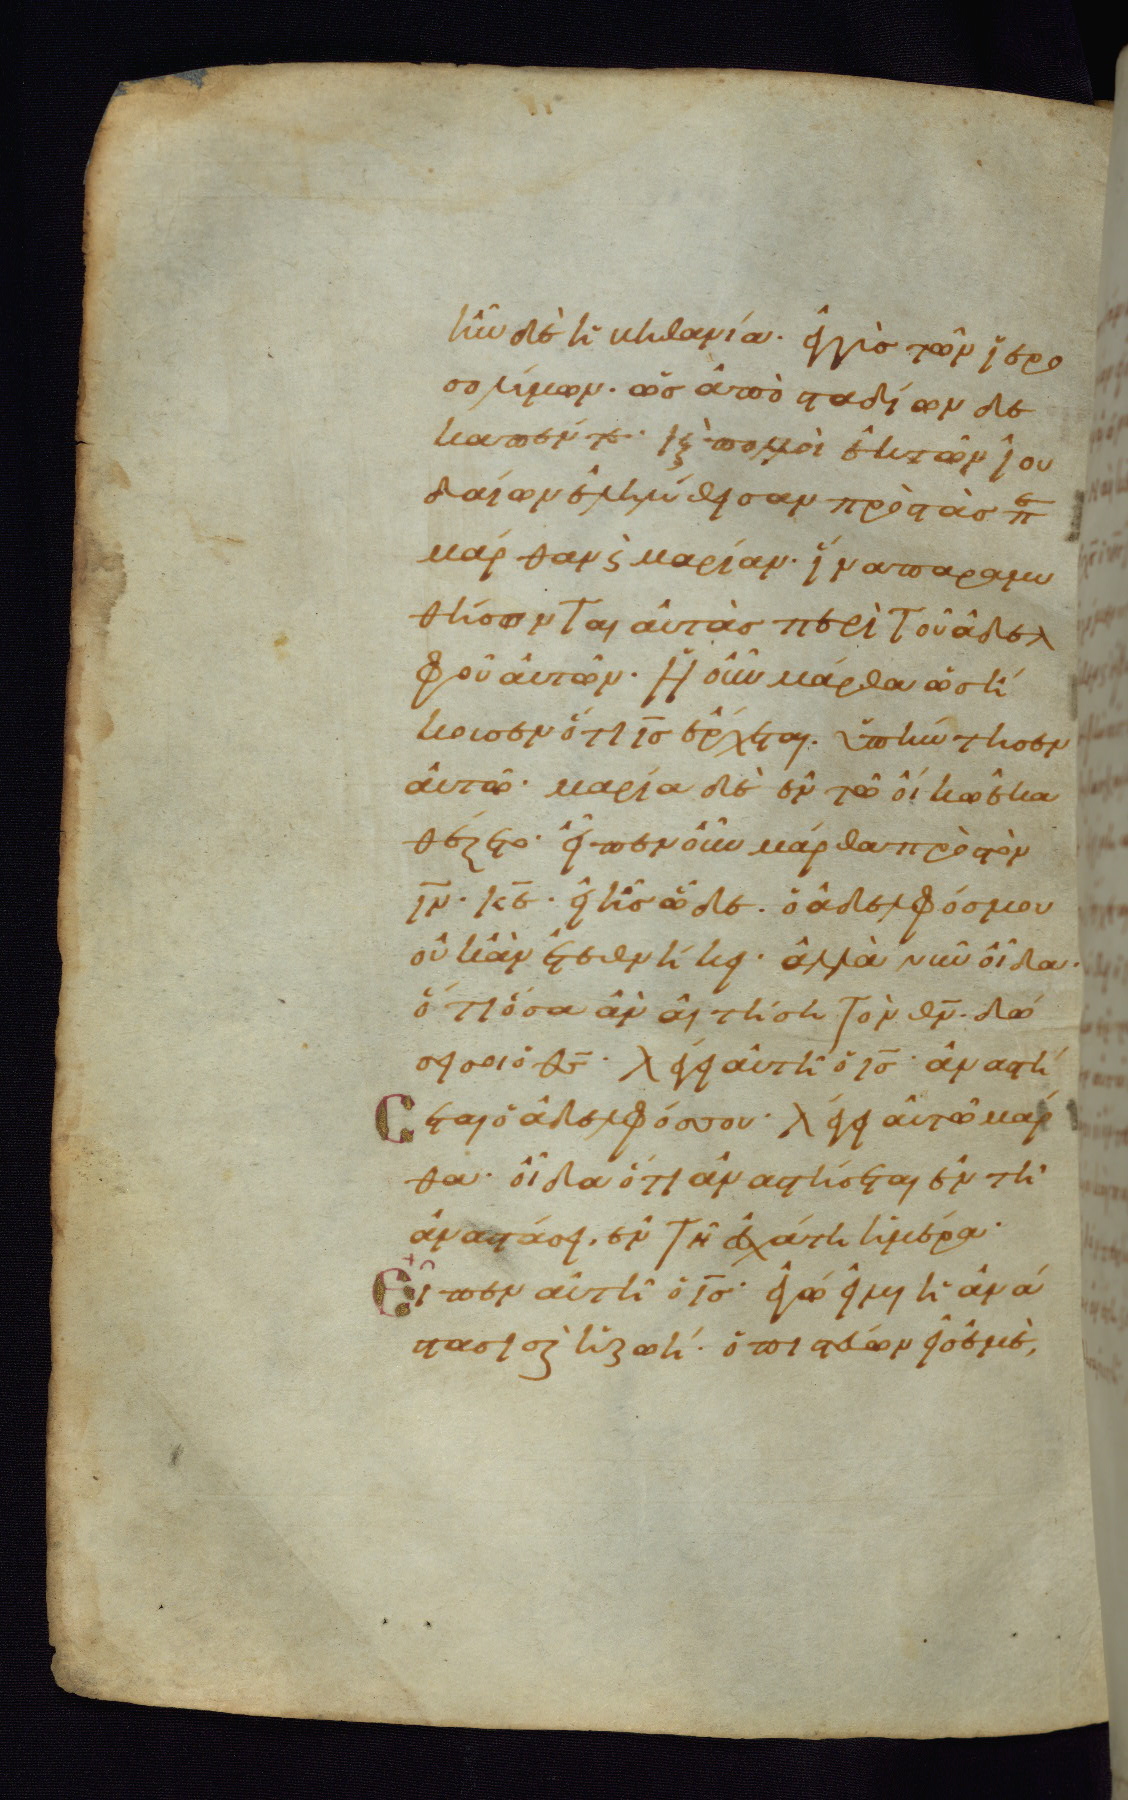 ἦν δὲ ἡ βηθανία· ἐγγὺς τῶν ἱερο
σολύμων· ὡς ἀπὸ σταδίων δε
καπέντε· κ̀ πολλοὶ ἐκ τῶν ἰου
δαίων ἐληλύθησαν πρὸς τὰς πε̅
μάρθαν κ̀ μαρίαν· ἵνα παραμυ
θήσονται αὐτὰς περὶ τοῦ ἀδελ
φοῦ αὐτῶν· Ἡ οὖν μάρθα ὡς ἤ
κουσεν ὅτι ις̅ ἔρχεται· ὑπήντησεν
αὐτῶ· μαρία δὲ ἐν τῶ οἴκω ἐκα
θέζετο· εἶπεν οὖν μάρθα πρὸς τὸν
ιν̅· κε̅· εἰ ἦς ὧδε· ὁ ἀδελφός μου
οὐκ ἂν ἐτεθνήκει· ἀλλὰ νῦν οἶδα·
ὅτι ὅσα ἂν αἰτήση τὸν θν̅· δώ
σει σοι ὁ θς̅· λέγει αὐτῆ ὁ ις̅· ἀναστή
Σεται ὁ ἀδελφός σου· λέγει αὐτῶ μάρ
θα· οἶδα ὅτι ἀναστήσεται ἐν τῆ
ἀναστάσει· ἐν τῆ ἐσχάτη ἡμέρα·
Εἶπεν αὐτῆ ὁ ις̅· ἐγώ εἰμι ἡ ἀνά
στασις κ̀ ἡ ζωή· ὁ πιστεύων εἰς ἐμὲ,